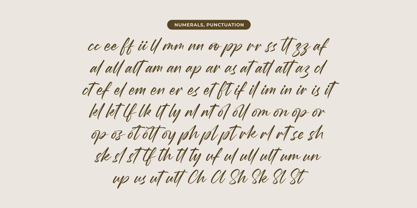 NUMERALS, PUNCTUATION
cc ee ff ii ll mm nn oo pp rr ss tt zz af
al all alt am an ap ar as at atl att az cl
ct ef el em en er es et ft if il im in ir is it
kl kt lf lk lt ly nl nt of ol oll om on op or
op os ot ott oy ph pl pt rk rl rt sc sh
sk sl st tf th tl ty uf ul ull ult um un
up us ut utt Ch Cl Sh Sk Sl St